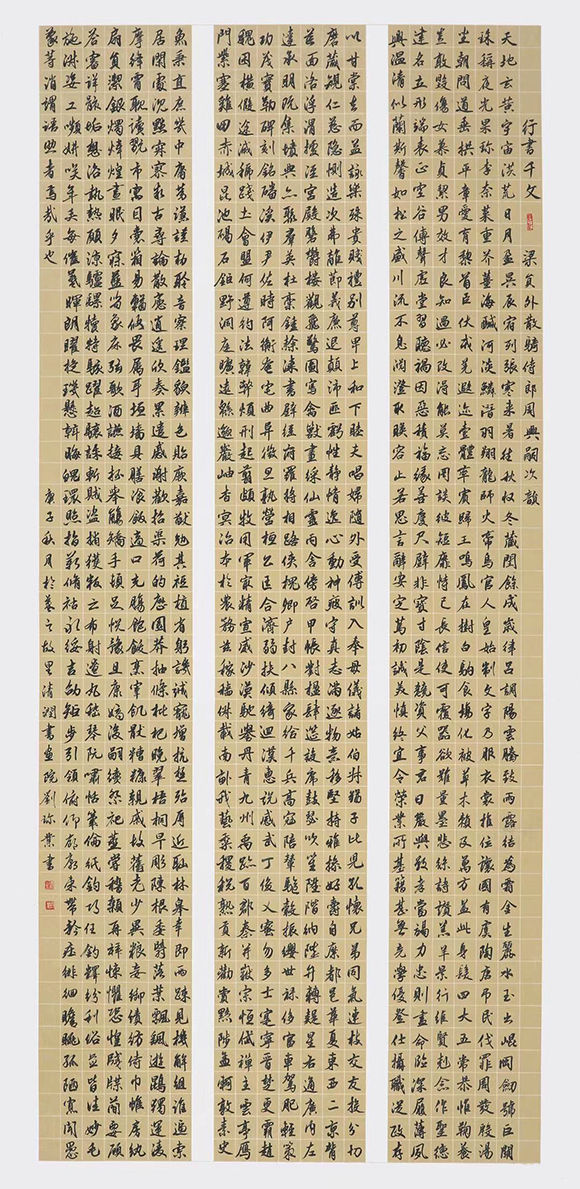 行書千文 梁員外散騎侍郎周興嗣次韻
天地玄黃宇宙洪荒日月盈昃辰宿列張寒來暑往秋收冬藏閏餘成歲律呂調陽雲騰致雨露結為霜金生麗水玉出崑岡劍號巨闕
珠稱夜光果珍李柰菜重芥薑海鹹河淡鱗潛羽翔龍師火帝鳥官人皇始制文字乃服衣裳推位讓國有虞陶唐弔民伐罪周發殷湯
坐朝問道垂拱平章愛育黎首臣伏戎羌遐邇壹體率賓歸王鳴鳳在樹白駒食場化被草木賴及萬方蓋此身髮四大五常恭惟鞠養
豈敢毀傷女慕貞絜男效才良知過必改得能莫忘罔談彼短靡恃己長信使可覆器欲難量墨悲絲染詩讚羔羊景行維賢剋念作聖德
建名立形端表正空谷傳聲虛堂習聽禍因惡積福緣善慶尺璧非寶寸陰是競資父事君曰嚴與敬孝當竭力忠則盡命臨深履薄夙
興溫凊似蘭斯馨如松之盛川流不息淵澄取暎容止若思言辭安定篤初誠美慎終宜令榮業所基籍甚無竟學優登仕攝職從政存
以甘棠去而益詠樂殊貴賤禮別尊卑上和下睦夫唱婦隨外受傅訓入奉母儀諸姑伯叔猶子比兒孔懷兄弟同氣連枝交友投分切
磨箴規仁慈隱惻造次弗離節義廉退顛沛匪虧性靜情逸心動神疲守真志滿逐物意移堅持雅操好爵自縻都邑華夏東西二京背
芒面洛浮渭據涇宮殿盤鬱樓觀飛驚圖寫禽獸畫綵仙靈丙舍傍啓甲帳對楹肆筵設席鼓瑟吹笙陞階納陛弁轉疑星右通廣內左
達承明既集墳典亦聚群英杜稾鍾隸漆書壁經府羅將相路俠槐卿戶封八縣家給千兵高冠陪輦驅轂振纓世祿侈富車駕肥輕策
功茂實勒碑刻銘磻溪伊尹佐時阿衡奄宅曲阜微旦孰營桓公匡合濟弱扶傾綺迴漢惠說感武丁俊乂密勿多士寔寧晉楚更霸趙
魏困橫假途滅虢踐土會盟何遵約法韓弊煩刑起翦頗牧用軍最精宣威沙漠馳譽丹青九州禹跡百郡秦并嶽宗恒岱禪主云亭鴈
門紫塞雞田赤城昆池碣石鉅野洞庭曠遠緜邈巖岫杳冥治本於農務茲稼穡俶載南畝我藝黍稷稅熟貢新勸賞黜陟孟軻敦素史
魚秉直庶幾中庸勞謙謹敕聆音察理鑑貌辨色貽厥嘉猷勉其祗植省躬譏誡寵增抗極殆辱近恥林皋幸即兩疏見機解組誰逼索
居閒處沉默寂寥求古尋論散慮逍遙欣奏累遣慼謝歡招渠荷的歷園莽抽條枇杷晚翠梧桐早彫陳根委翳落葉飄颻遊鵾獨運凌
摩絳霄耽讀翫市寓目囊箱易輶攸畏屬耳垣墻具膳飡飯適口充腸飽飫烹宰飢厭糟糠親戚故舊老少異糧妾御績紡侍巾帷房紈
扇圓潔銀燭煒煌晝眠夕寐藍筍象床弦歌酒讌接杯舉觴矯手頓足悅豫且康嫡後嗣續祭祀蒸嘗稽顙再拜悚懼恐惶牋牒簡要顧
答審詳骸垢想浴執熱願涼驢騾犢特駭躍超驤誅斬賊盜捕獲叛亡布射遼丸嵇琴阮嘯恬筆倫紙鈞巧任釣釋紛利俗並皆佳妙毛
施淑姿工顰妍笑年矢每催曦暉朗曜旋璣懸斡晦魄環照指薪脩祜永綏吉劭矩步引領俯仰廊廟束帶矜莊徘徊瞻眺孤陋寡聞愚
蒙等誚謂語助者焉哉乎也 庚子秋月於羲之故里清潤書畫院劉珎業書